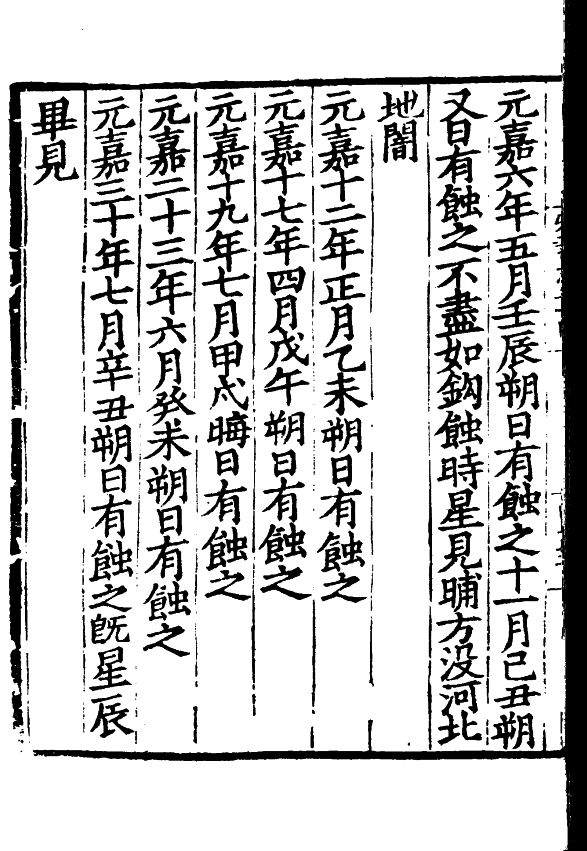 元嘉六年五月壬辰朔日有蝕之十一月己丑朔
又日有蝕之不盡如鈎蝕時星見晡方没河北
地闇
元嘉十二年正月乙未朔日有蝕之
元嘉十七年四月戊午朔日有蝕之
元嘉十九年七月甲戍晦日有蝕之
元嘉二十三年六月癸未朔日有蝕之
元嘉三十年七月辛丑朔日有蝕之旣星辰
畢見